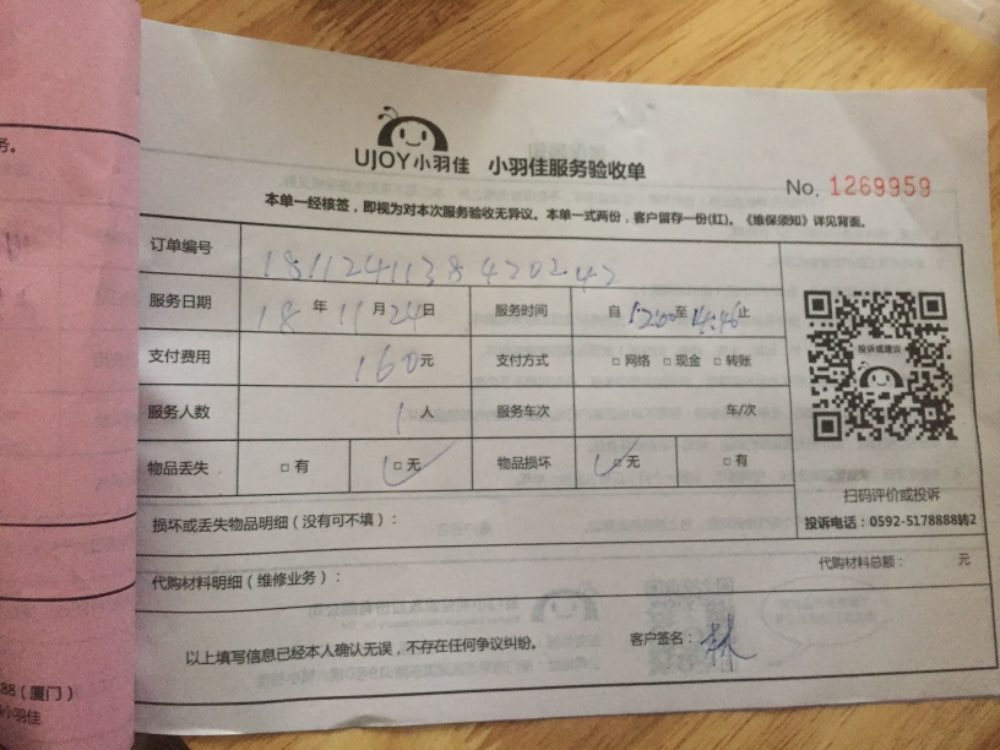 务。
UJOY小羽佳 小羽佳服务验收单
No. 1269959
本单一经核签，即视为对本次服务验收无异议。本单一式两份，客户留存一份(红)。《维保须知》详见背面。
订单编号 181124113847020242
服务日期 18 年 11 月 24 日 服务时间 自 12:00 至 14:46 止
支付费用 160 元 支付方式 □ 网络 □ 现金 □ 转账
服务人数 1 人 服务车次 车/次
物品丢失 □ 有 □ 无 物品损坏 □ 无 □ 有
投诉或建议
扫码评价或投诉
投诉电话：0592-5178888转2
损坏或丢失物品明细（没有可不填）：
代购材料明细（维修业务）： 代购材料总额： 元
以上填写信息已经本人确认无误，不存在任何争议纠纷。 客户签名：林
88（厦门）
小羽佳